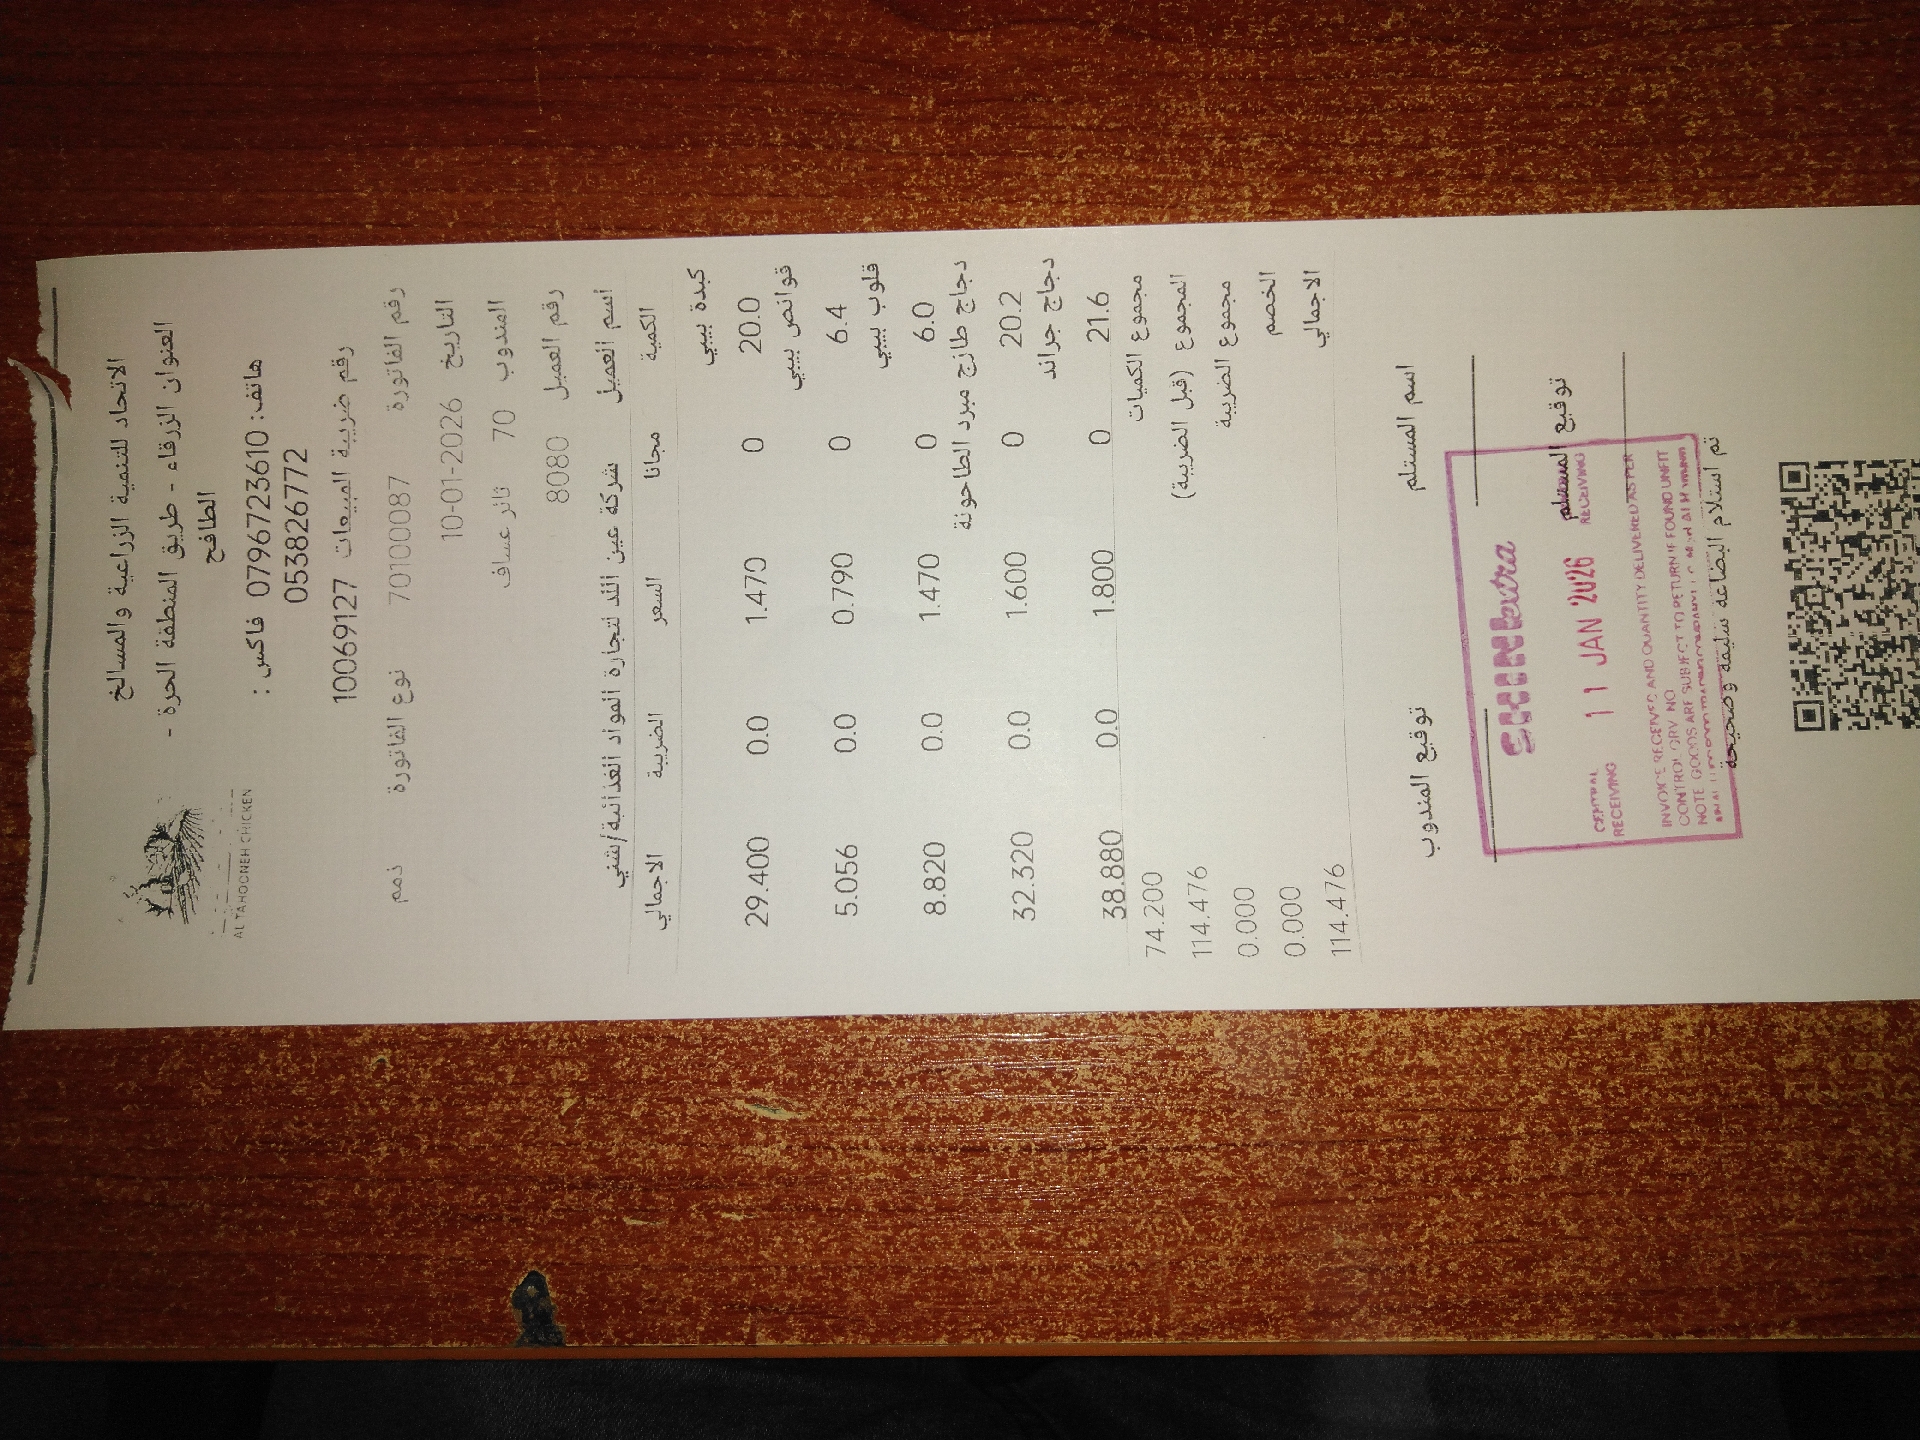 الاتحاد للتنمية الزراعية والمسالخ
العنوان الزرقاء - طريق المنطقة الحرة -
الطافح
هاتف: 0796723610 فاكس :
053826772
AL TAHOONEH CHICKEN
رقم ضريبة المبيعات 10069127
رقم الفاتورة 70100087 نوع الفاتورة ذمم
التاريخ 10-01-2026
المندوب 70 ثائر عساف
رقم العميل 8080
اسم العميل شركة عين الند لتجارة المواد الغذائية/شني
الكمية مجانا السعر الضريبة الاجمالي
كبدة بيبي
20.0 0 1.470 0.0 29.400
قوانص بيبي
6.4 0 0.790 0.0 5.056
قلوب بيبي
6.0 0 1.470 0.0 8.820
دجاج طازج مبرد الطاحونة
20.2 0 1.600 0.0 32.320
دجاج جراند
21.6 0 1.800 0.0 38.880
مجموع الكميات 74.200
المجموع (قبل الضريبة) 114.476
مجموع الضريبة 0.000
الخصم 0.000
الاجمالي 114.476
اسم المستلم توقيع المندوب
توقيع المستلم
CENTRAL RECEIVING
11 JAN 2026
RECEIVING
INVOICE RECEIVED AND QUANTITY DELIVERED AS PER
CONTROL QRV NO
NOTE GOODS ARE SUBJECT TO RETURN IF FOUND UNFIT
تم استلام البضاعة سليمة وصحيحة